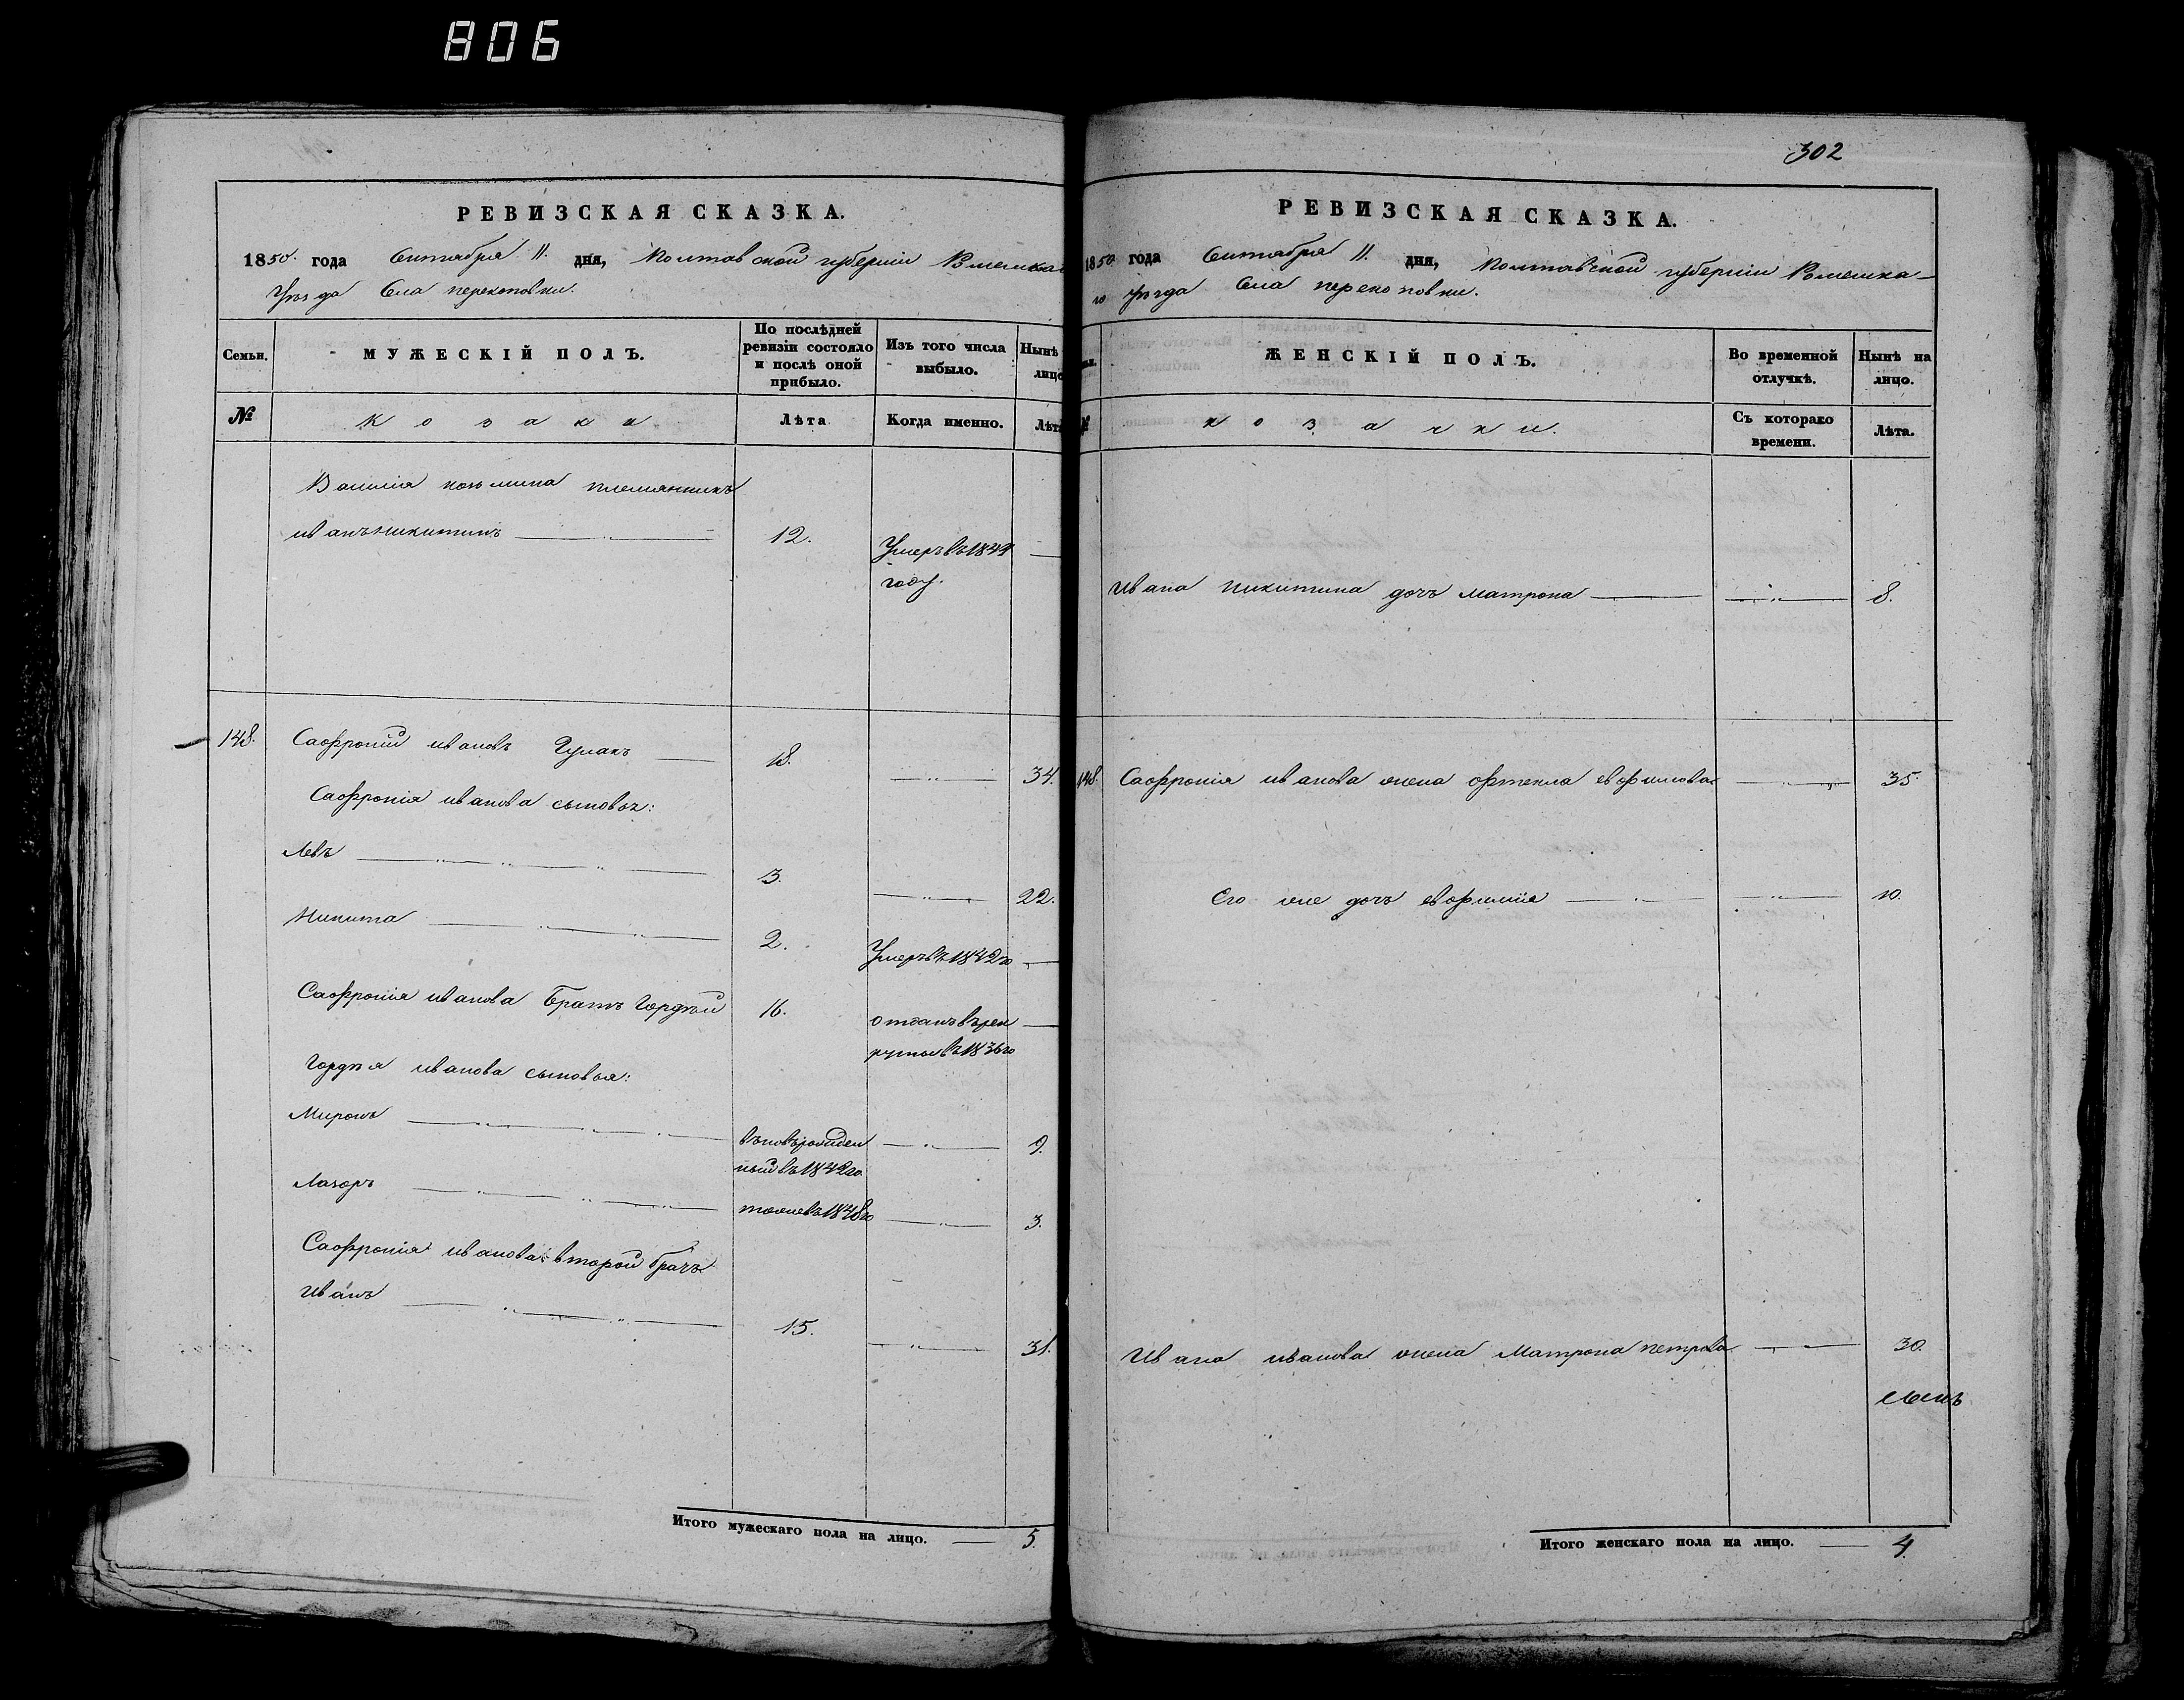 806
РЕВИЗСКАЯ СКАЗКА.
1850. года Сентября 11. дня, Полтавской губерніи Роменска
Уѣзда Села перекоповки.
Семьи.
МУЖЕСКІЙ ПОЛЪ.
По послѣдней ревизіи состояло и послѣ оной прибыло.
Изъ того числа выбыло.
Нынѣ лицо
№
козаки
Лѣта
Когда именно.
Лѣт
Василія козьмина племянникъ
иванъ никитинъ 12. Умеръ въ 1849
году.
148. Саофроній ивановъ Гулакъ 18. 34.
Саофронія иванова сыновья:
Левъ 3. 22.
Никита 2. Умеръ въ 1842го
Саофронія иванова Братъ Гордѣй 16. отданъ въ рек
руты въ 1836го
Гордѣя иванова сыновья:
Миронъ вновьрожден 9.
ный въ 1842го
Лазоръ тоже въ 1848го 3.
Саофронія иванова второй братъ
иванъ 15. 31.
Итого мужескаго пола на лицо. 5.
302
РЕВИЗСКАЯ СКАЗКА.
1850 года Сентября 11. дня, Полтавской губерніи Роменска
го уѣзда Села перекоповки.
№
ЖЕНСКІЙ ПОЛЪ.
Во временной отлучкѣ.
Нынѣ на лицо.
козачки.
Съ котораго времени.
Лѣта.
Ивана Никитина дочь Матрона 8.
148. Саофронія иванова жена фтекла евфимова 35
Его же дочь евфимія 10.
Ивана иванова жена Матрона петрова 30.
Итого женскаго пола на лицо. 4.